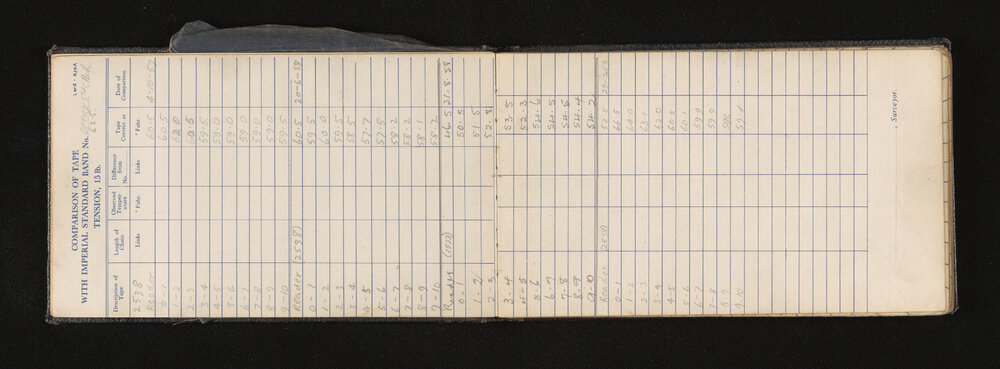 L.& S.—R24A
COMPARISON OF TAPE
WITH IMPERIAL STANDARD BAND No.
62.5
TENSION, 15 lb.
Description of Tape Length of Chain Observed Temperature Difference from No. Tape Correct at Date of Comparison
Links ° Fahr. Links ° Fahr.
2538
Reader 60.5 4-10-57
0-1 60.5
1-2 62.0
2-3 60.5
3-4 59.5
4-5 59.0
5-6 59.0
6-7 59.0
7-8 59.0
8-9 59.0
9-10 59.5
Reader (2538) 60.5 20-6-58
0-1 59.5
1-2 60.0
2-3 59.5
3-4 58.5
4-5 57.7
5-6 57.8
6-7 58.2
7-8 58.2
8-9 58.1
9-10 58.2
Reader (1533) 46.5 21-8-58
0-1 50.5
1-2 51.5
2-3 52.8
3-4 53.5
4-5 52.3
5-6 54.6
6-7 54.5
7-8 54.5
8-9 54.4
9-10 54.2
Reader (2518) 52.5
0-1 66.5
64.0
2-3 63.1
3-4 62.0
4-5 60.5
5-6 60.1
6-7 59.9
7-8 59.9
8-9
9-10 59.4
, Surveyor.